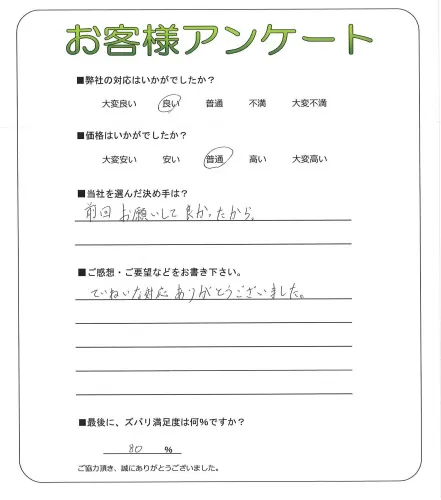 お客様アンケート
■弊社の対応はいかがでしたか？
大変良い 良い 普通 不満 大変不満
■価格はいかがでしたか？
大変安い 安い 普通 高い 大変高い
■当社を選んだ決め手は？
前回お願いして良かったから。
■ご感想・ご要望などをお書き下さい。
ていねいな対応ありがとうございました。
■最後に、ズバリ満足度は何％ですか？
80 ％
ご協力頂き、誠にありがとうございました。